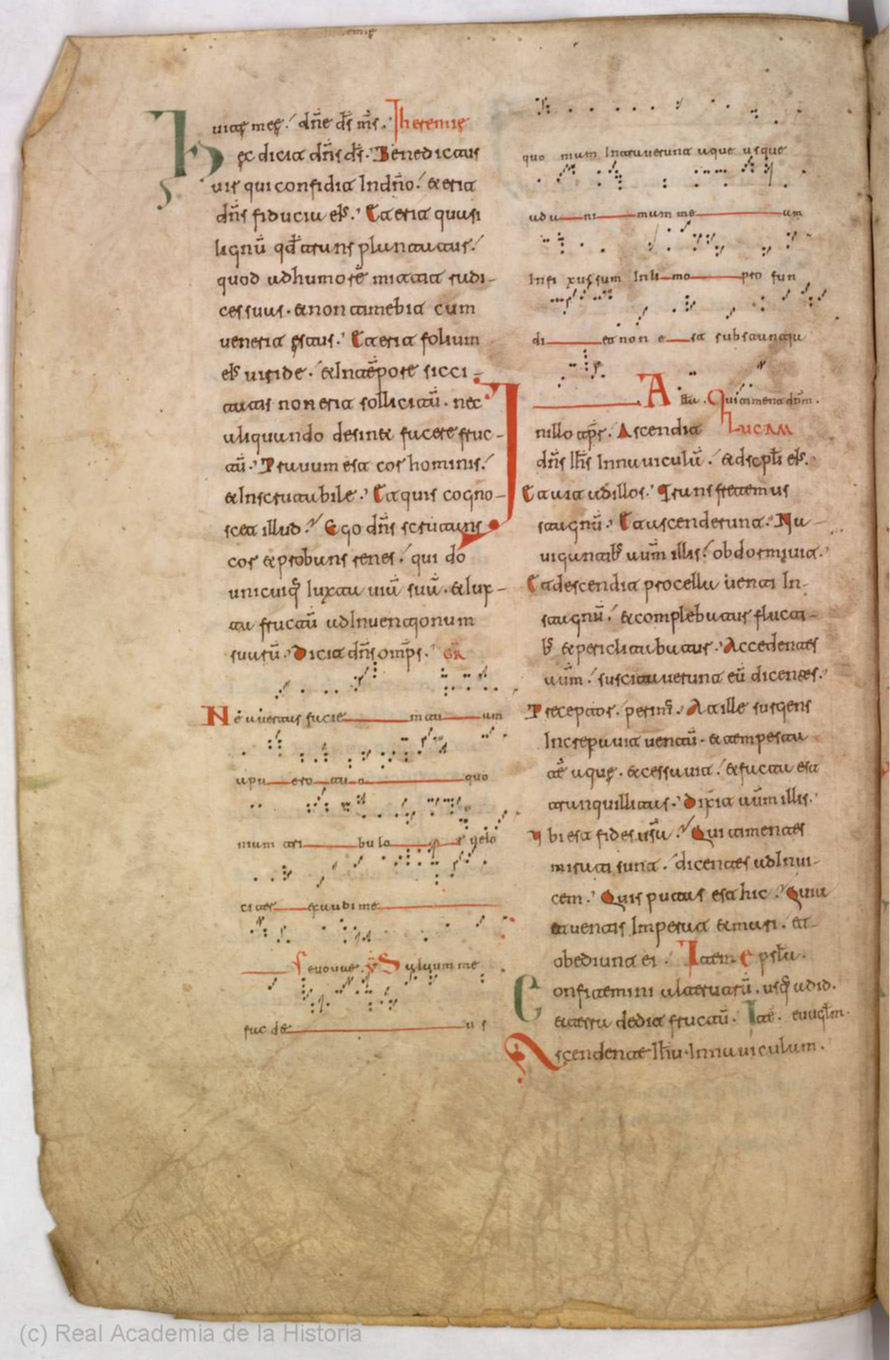 uitę meę. dñe ds ms. Iheremię
Hęc dicit dñs ds. Benedictus
uir qui confidit In dño. & erit
dñs fiducia eis. Et erit quasi
lignũ qd transplantatur.
quod ad humorẽ mittit radi-
ces suas. & non timebit cum
uenerit ęstas. Et erit folium
eis uiride. & In tẽpore sicci-
tatis non erit sollicitũ. nec
aliquando desinet facere fruc-
tũ. Prauum est cor hominis.
& Inscrutabile. Et quis cogno-
scet illud. Ego dñs scrutans
cor & probans renes. qui do
unicuiq; iuxta uiã suã. & iux-
ta fructũ adInuentionum
suarũ. Dicit dñs omps. GR
Ne auertas facie m tu am
a pu ero tu o quo
niam tri bu lo r uelo
citer exaudi me
Seuouae. V Saluum me
fac de us
quo niam Intrauerunt aque usque
ad a ni mam me am
Infi xus sum In li mo pro fun
di et non e st substantia
Alla. Qui timent dnm.
In illo tpr. Ascendit LUCAM
dñs Ihs In nauiculã. & discpli eis.
Et ait ad illos. Transfretemus
stagnũ. Et ascenderunt. Na-
uigantib; autm illis. obdormiuit.
Et descendit procella uenti In
stagnũ. & complebatur flucti-
b; & periclitabatur. Accedentes
autm. suscitauerunt eũ dicentes.
Preceptor. perim. At ille surgens
Increpauit uentũ. & tempesta
tẽ aquę. & cessauit. & facta est
tranquillitas. Dixit autm illis.
Ubi est fides ura? Qui timentes
mirati sunt. dicentes ad Inui-
cem. Quis putas est hic. Quia
& uentis Imperat & mari. et
obediunt ei. Item epsla.
Confitemini alterutrũ. usq; ad id.
et terra dedit fructũ. Ite. euuglm.
Ascendente Ihu. In nauiculam.
(c) Real Academia de la Historia